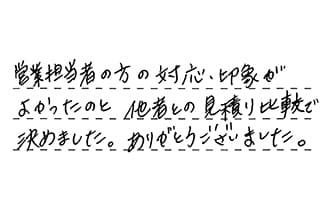 営業担当者の方の対応、印象が
よかったのと 他者との見積り比較で
決めました。ありがとうございました。